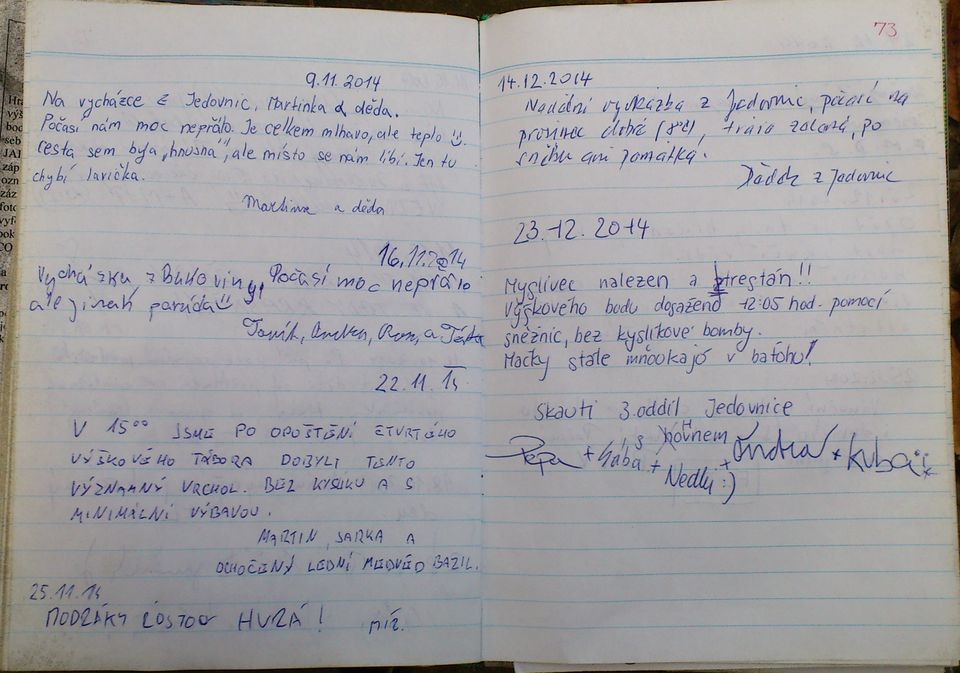 9.11.2014
Na vycházce z Jedovnic, Martinka a děda.
Počasí nám moc nepřálo. Je celkem mlhavo, ale teplo
cesta sem byla „hnusná", ale místo se nám líbí. Jen tu
chybí lavička.
Martina a děda
16.11.2014
Vycházka z Bukoviny, Počasí moc nepřálo
ale jinak paráda
Toník, Andrea, a Táta
22.11.14
V 15°° JSME PO OPUŠTĚNÍ ČTVRTÉHO
VÝŠKOVÉHO TÁBORA DOBYLI TENTO
VÝZNAMNÝ VRCHOL. BEZ KYSLÍKU A S
MINIMÁLNÍ VÝBAVOU.
MARTIN, ŠÁRKA A
OCHOČENÝ LEDNÍ MEDVĚD BAZIL.
25.11.14
HURÁ!
73
14.12.2014
vycházka z Jedovnic, počasí na
prosinec dobré (8°C), tráva zelená, po
sněhu ani památka.
z Jedovnic
23.12.2014
Myslivec nalezen a ztrestán!!
Výškového bodu dosaženo 12:05 hod. pomocí
sněžnic, bez kyslíkové bomby.
Mačky stále mňoukajó v baťohu!
Skauti 3.oddíl Jedovnice
Pepa + Gába + Nedly :) + Ondra + Kuba